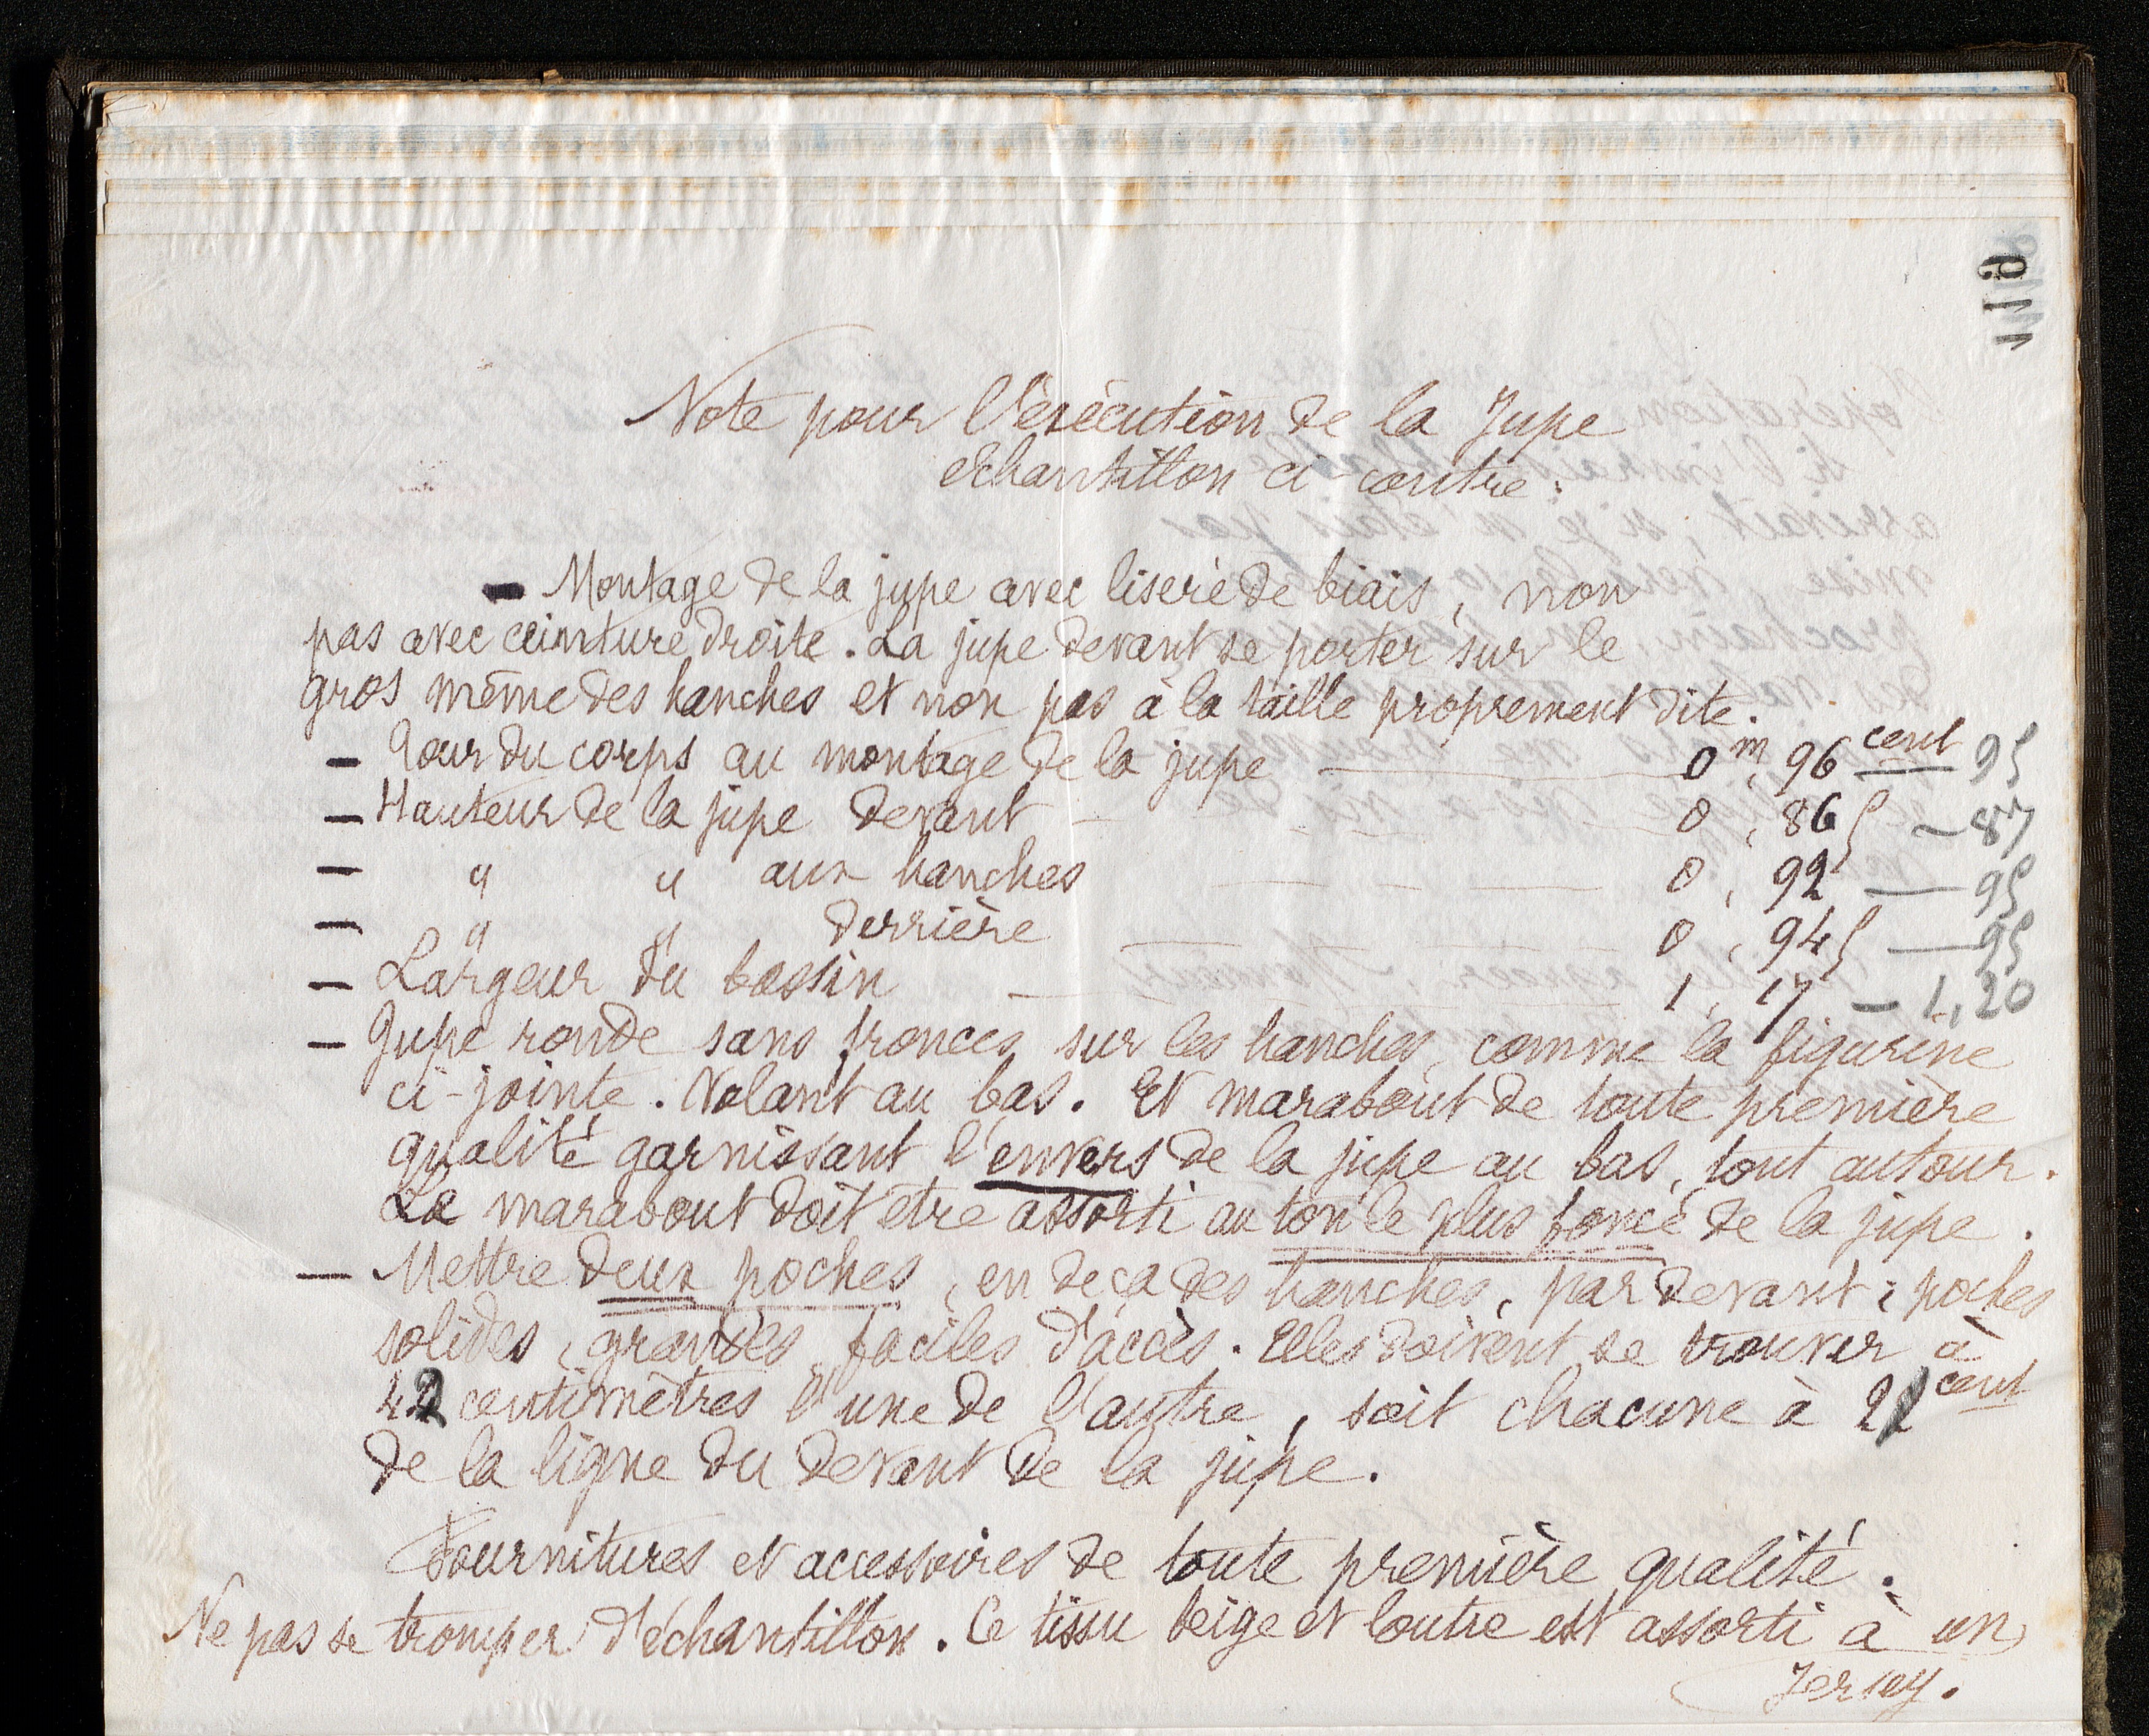 116
Note pour l'exécution de la Jupe
échantillon ci-contre.
— Montage de la jupe avec liseré de biais, non
pas avec ceinture droite. La jupe devant se porter sur le
gros même des hanches et non pas à la taille proprement dite.
— Tour du corps au montage de la jupe — 0m, 96 cent — 95
— Hauteur de la jupe devant — 0, 86 — 87
— " " aux hanches — 0, 92 — 95
— " " derrière — 0, 94 — 95
— Largeur du bassin — 1, 17 — 1,20
— Jupe ronde sans fronces sur les hanches, comme la figurine
ci-jointe. Volant au bas. Et marabout de toute première
qualité garnissant l'envers de la jupe au bas, tout autour.
Le marabout doit être assorti au ton le plus foncé de la jupe.
— Mettre deux poches, en deça des hanches, par devant ; poches
solides, grandes, faciles d'accès. Elles doivent se trouver à
42 centimètres l'une de l'autre, soit chacune à 21 cent
de la ligne du devant de la jupe.
Fournitures et accessoires de toute première qualité.
Ne pas se tromper d'échantillon. Ce tissu beige et loutre est assorti à un
Jersey.